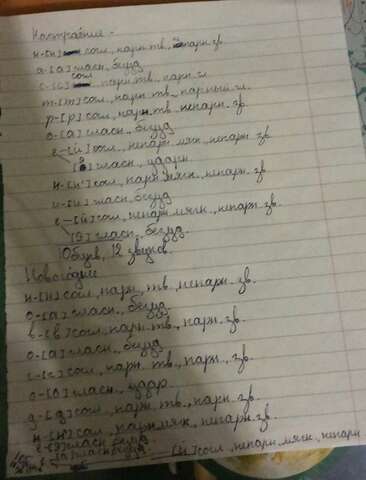 Настроение -
н-[н] сол., парн. тв., непарн. зв.
а-[а] гласн., безуд.
с-[с] сол., парн. тв., парн. гл.
т-[т] сол., парн. тв., парный гл.
р-[р] сол., парн. тв. непарн. зв.
о-[а] гласн., безуд.
е-[й] сол., непарн. мягк., непарн. зв.
[э] гласн., ударн.
н-[н'] сол., парн. мягк., непарн. зв.
и-[и] гласн. безуд.
е-[й] сол., непарн. мягк., непарн. зв.
[э] гласн., безуд.
10 букв, 12 звуков.
Новогоднее
н-[н] сол., парн., тв., непарн. зв.
о-[а] гласн., безуд.
в-[в] сол., парн. тв., парн. зв.
о-[а] гласн., безуд.
г-[г] сол., парн. тв., парн. зв.
о-[о] гласн., удар.
д-[д] сол., парн. тв., парн. зв.
н-[н'] сол., парн. мяк., непарн. зв.
е-[э] гласн. безуд.
[й] сол., непарн. мягк., непарн